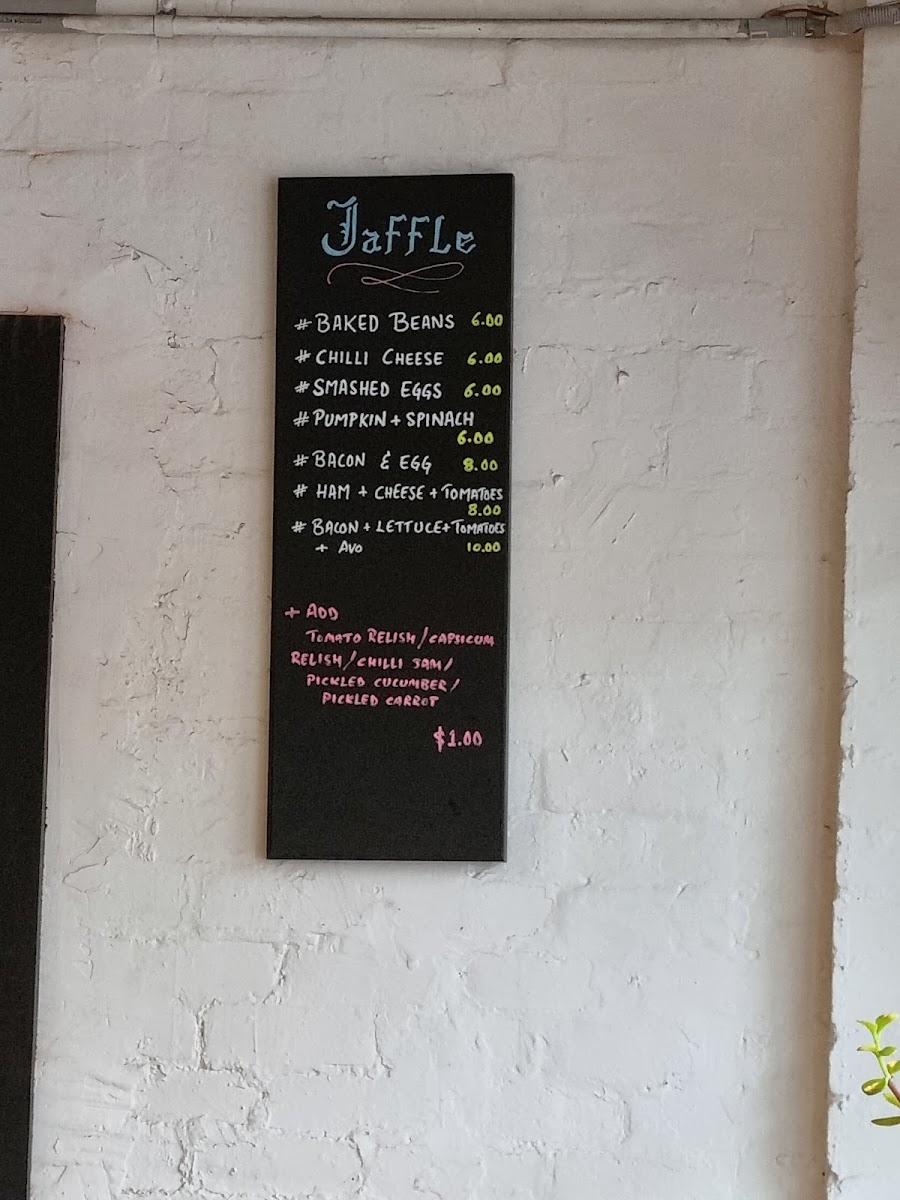 Jaffle
# BAKED BEANS 6.00
# CHILLI CHEESE 6.00
# SMASHED EGGS 6.00
# PUMPKIN + SPINACH
6.00
# BACON & EGG 8.00
# HAM + CHEESE + TOMATOES
8.00
# BACON + LETTUCE + TOMATOES
+ AVO 10.00
+ ADD
TOMATO RELISH / CAPSICUM
RELISH / CHILLI JAM /
PICKLED CUCUMBER /
PICKLED CARROT
$1.00